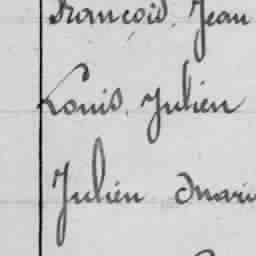 François, Jean
Louis, Julien
Julien Marie